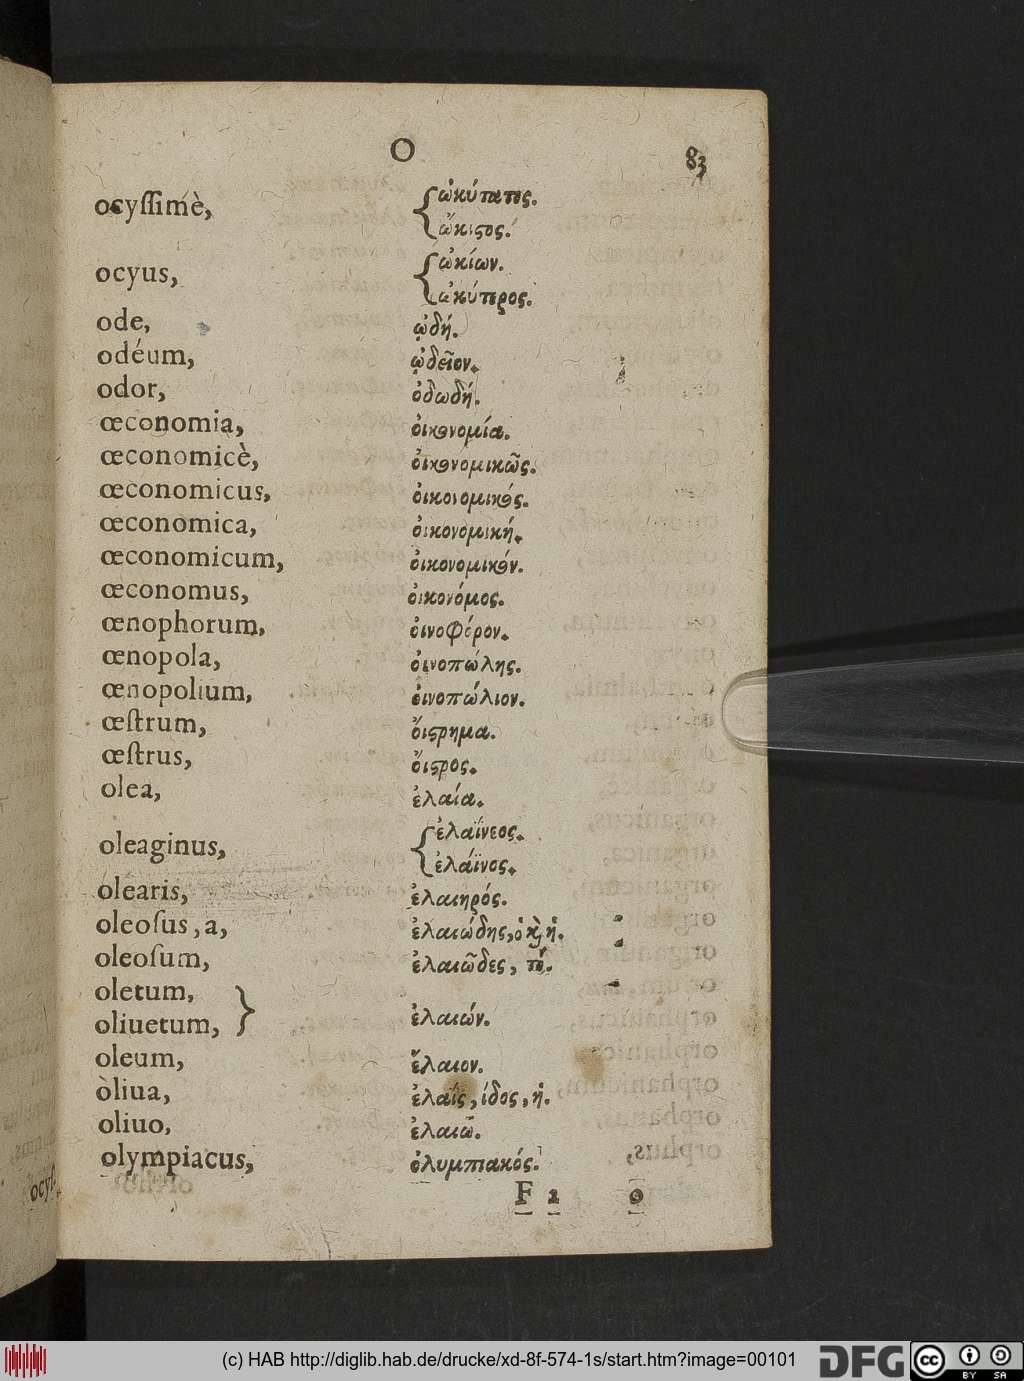 O 83
ocyſſimè, { ὠκύτατος.
ὤκιϛος.
ocyus, { ὠκίων.
ὠκύτερος.
ode, ᾠδή.
odéum, ᾠδεῖον.
odor, ὀδωδή.
œconomia, ὀικονομία.
œconomicè, ὀικονομικῶς.
œconomicus, ὀικονομικός.
œconomica, ὀικονομική.
œconomicum, ὀικονομικόν.
œconomus, ὀικονόμος.
œnophorum, ὀινοφόρον.
œnopola, ὀινοπώλης.
œnopolium, ὀινοπώλιον.
œſtrum, ὄιϛρημα.
œſtrus, ὄιϛρος.
olea, ἐλαία.
oleaginus, { ἐλαΐνεος.
ἐλάϊνος.
olearis, ἐλαιηρός.
oleoſus, a, ἐλαιώδης, ὁ ϗ ἡ.
oleoſum, ἐλαιῶδες, τό.
oletum,
oliuetum, } ἐλαιών.
oleum, ἔλαιον.
òliua, ἐλαΐς, ίδος, ἡ.
oliuo, ἐλαιῶ.
olympiacus, ὀλυμπιακός.
F 2 o
ocyſ-
(c) HAB http://diglib.hab.de/drucke/xd-8f-574-1s/start.htm?image=00101
DFG
cc BY SA